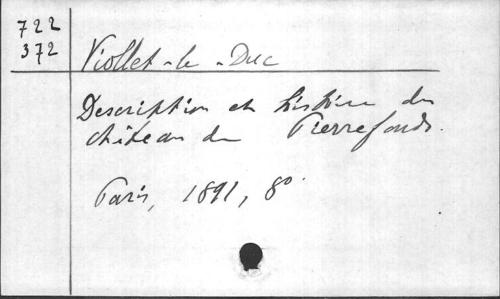 722
372
Viollet-le-Duc
Description et histoire du
château de Pierrefonds.
Paris, 1891, 8º